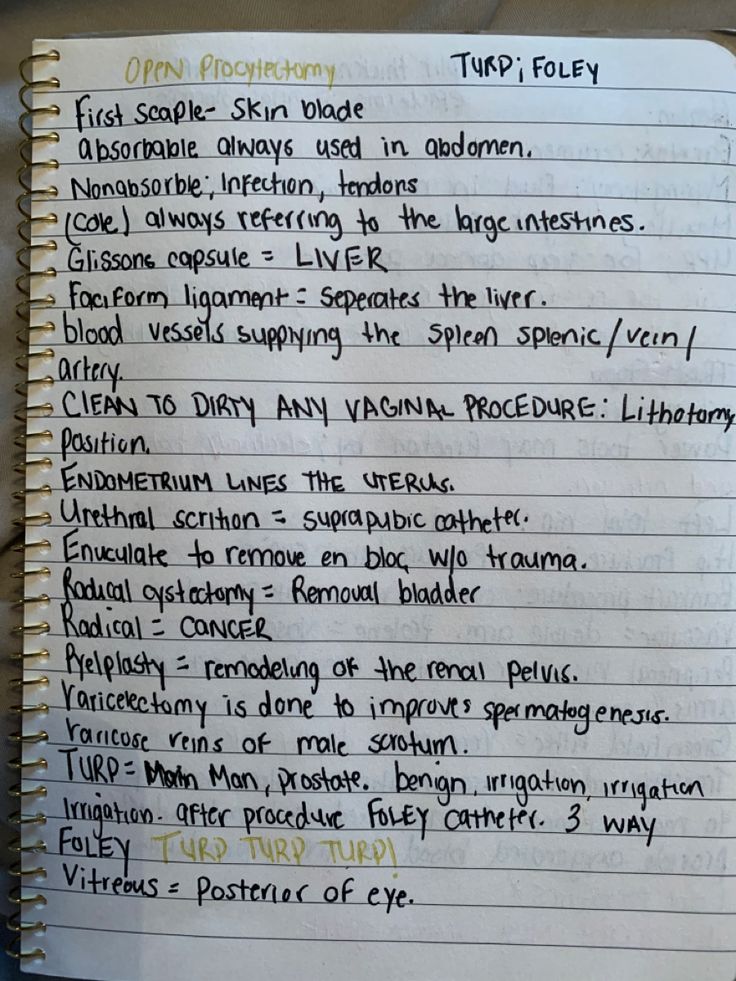 OPEN Procytectomy TURP; FOLEY
First scaple- Skin blade
absorbable always used in abdomen.
Nonabsorble; Infection, tendons
(cole) always referring to the large intestines.
Glissons capsule = LIVER
Faciform ligament = Seperates the liver.
blood vessels supplying the spleen splenic/vein/
artery.
CLEAN TO DIRTY ANY VAGINAL PROCEDURE: Lithotomy
Position.
ENDOMETRIUM LINES THE UTERUS.
Urethral scrition = suprapubic catheter.
Enuculate to remove en bloc w/o trauma.
Radical cystectomy = Removal bladder
Radical = CANCER
Pyelplasty = remodeling of the renal pelvis.
Varicelectomy is done to improves spermatogenesis.
Varicose veins of male scrotum.
TURP = Man, prostate. benign, irrigation, irrigation
Irrigation. after procedure FOLEY catheter. 3 WAY
FOLEY TURP TURP TURP!
Vitreous = Posterior of eye.